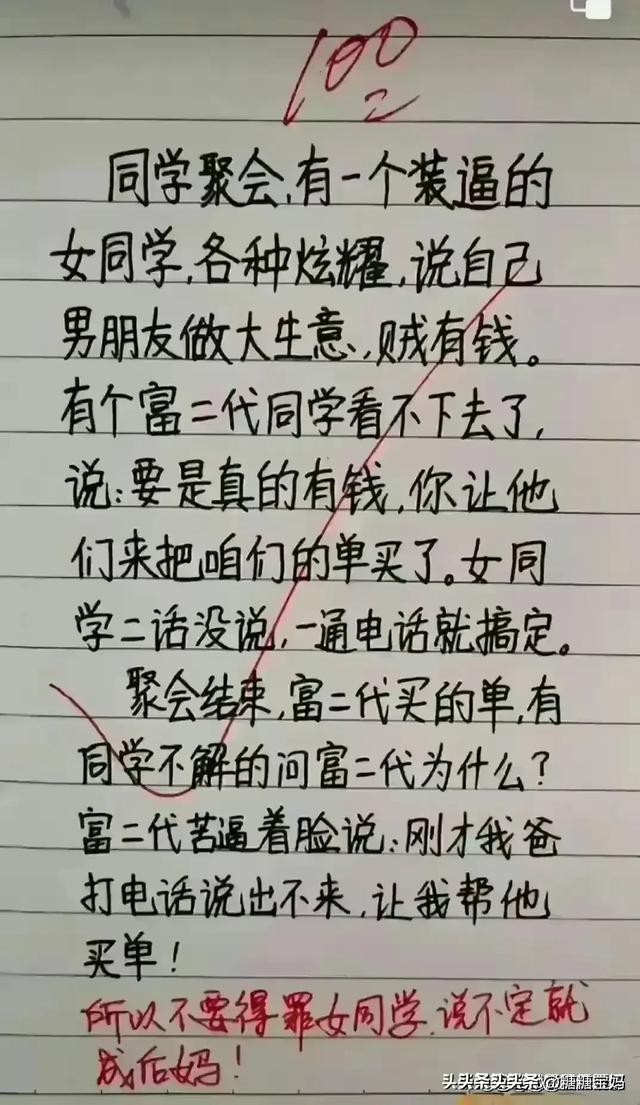 100
同学聚会,有一个装逼的
女同学,各种炫耀,说自己
男朋友做大生意,贼有钱。
有个富二代同学看不下去了,
说:要是真的有钱,你让他
们来把咱们的单买了。女同
学二话没说,一通电话就搞定。
聚会结束,富二代买的单,有
同学不解的问富二代为什么?
富二代苦逼着脸说:刚才我爸
打电话说出不来,让我帮他
买单!
所以不要得罪女同学,说不定就
成后妈!
头条@糖糖宝妈